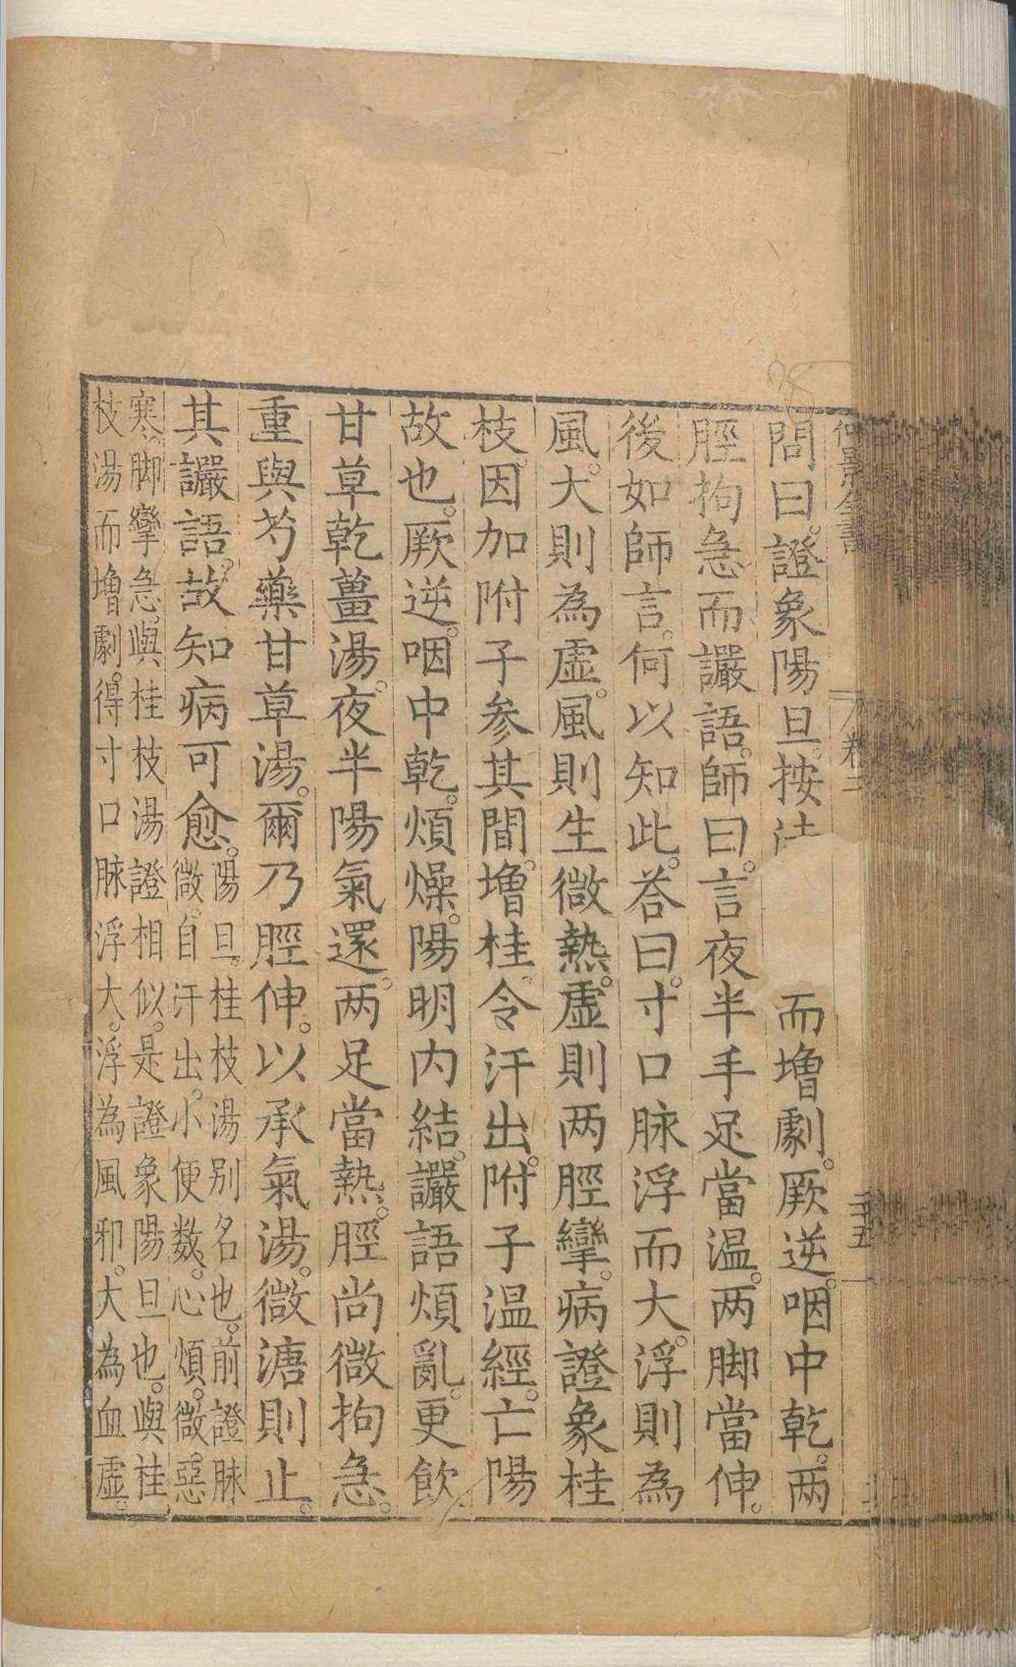 仲景全書
卷二
三五
問曰。證象陽旦。按法
而增劇。厥逆。咽中乾。两
脛拘急而讝語。師曰。言夜半手足當温。两脚當伸。
後如師言。何以知此。荅曰。寸口脉浮而大。浮則為
風。大則為虛。風則生微熱。虛則两脛攣。病證象桂
枝。因加附子参其間。增桂令汗出。附子温經。亡陽
故也。厥逆。咽中乾。煩燥。陽明内結。讝語煩亂。更飲
甘草乾薑湯。夜半陽氣還。两足當熱。脛尚微拘急。
重與芍藥甘草湯。爾乃脛伸。以承氣湯。微溏則止
其讝語。故知病可愈。
陽旦。桂枝湯别名也。前證脉
微。自汗出。小便数。心煩。微惡
寒。脚攣急。與桂枝湯證相似。是證象陽旦也。與桂
枝湯而增劇。得寸口脉浮大。浮為風邪。大為血虛。